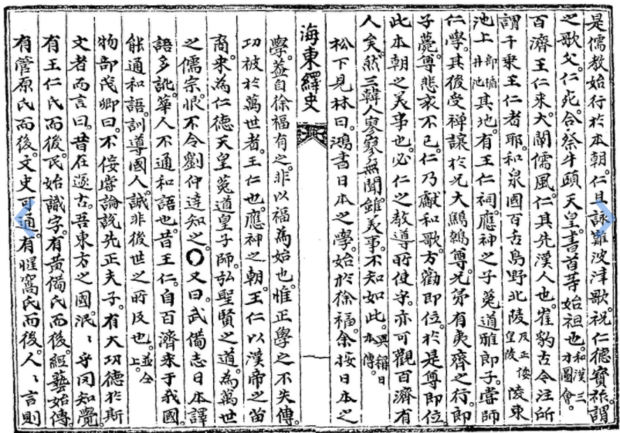 是儒教始行於本朝。仁且詠難波津歌。祝仁德寶祚。謂
之歌父。仁死。合祭牛頭天皇。書首等始祖也。和漢三才圖會。
百濟王仁來。大闡儒風。仁其先漢人也。崔豹古今注所
謂千乘王仁者耶。和泉國百舌鳥野北陵反正後皇陵陵東
池上其地。有王仁祠。應神之子菟道雅郎子。嘗師
仁學。其後受禪讓於兄大鷦鷯尊。兄弟有夷齊之行。郎
子薨。尊悲哀不已。仁乃獻和歌。方勸即位。於是尊即位
此本朝之美事也。必仁之教導。時使守。亦可觀百濟有
人矣。然三韓人寥寥無聞。雖美事。不知如此。異稱日本傳。
松下見林曰。鴻書日本之學。始於徐福。余按日本之
海東繹史
學。蓋自徐福有之。非以福為始也。惟正學之不失傳。
功被於萬世者。王仁也。應神之朝。王仁以漢帝之苗
裔。來為仁德天皇菟道皇子師。於聖賢之道。為萬世
之儒宗。恨不令劉仲達知之。○又曰。武備志日本譯
語多訛。華人不通和語也。昔王仁。自百濟來于我國
能通和語。訓導國人。誠非後世之所及也。並仝上。
物部茂卿曰。不佞嘗論說先正夫子。有大功德於斯
文者。而言曰。昔在邃古。吾東方之國。泯〻乎罔知覺。
有王仁氏而後。民始識字。有黃備氏而後。經藝始傳
有菅原氏而後。文史可通。有惺窩氏而後。人〻言則